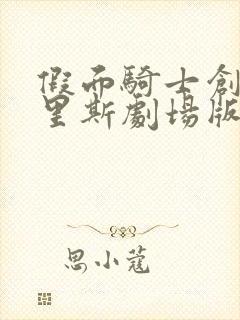 假面騎士創
里斯劇場版
思小蔻